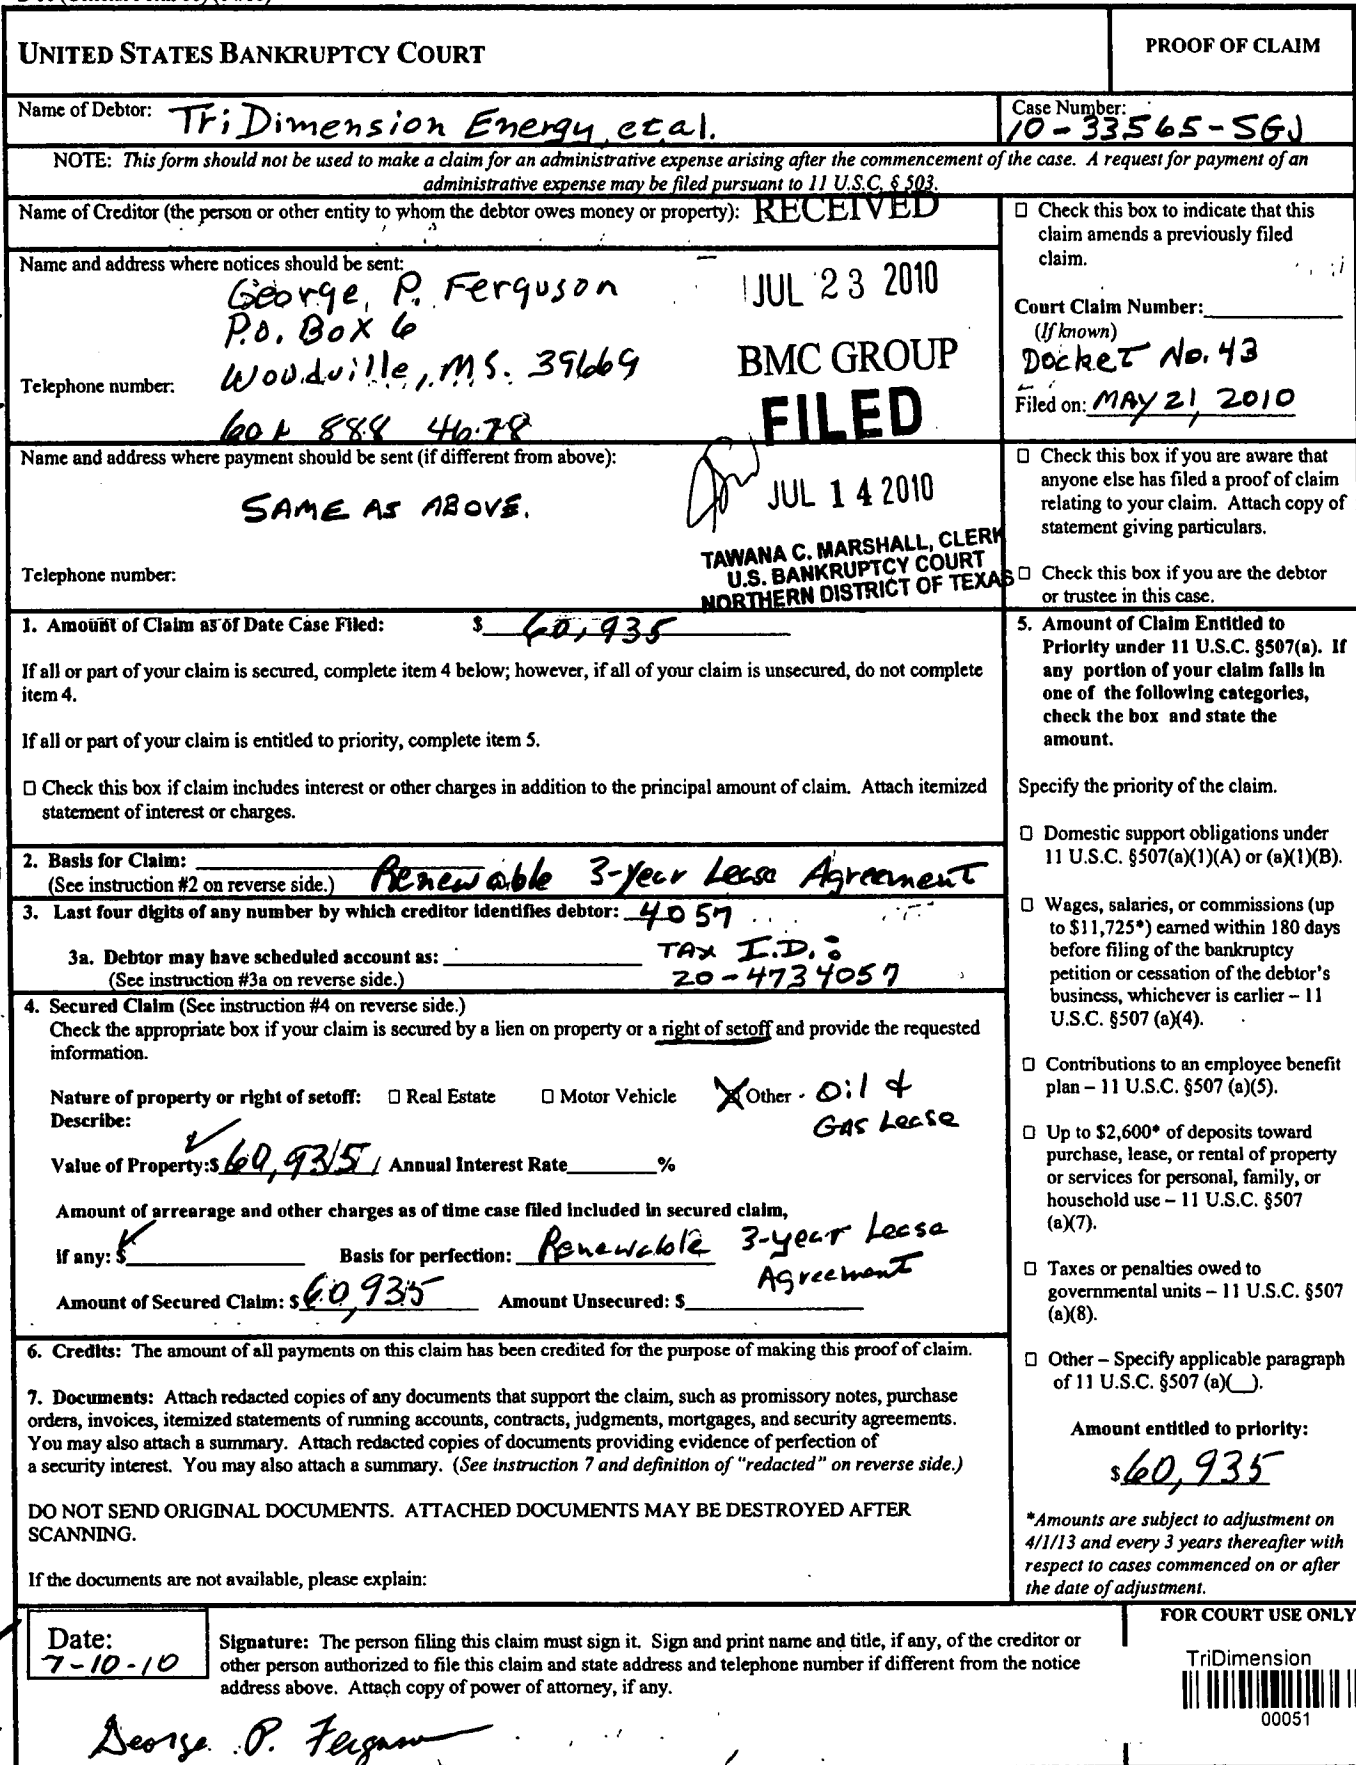 UNITED STATES BANKRUPTCY COURT
PROOF OF CLAIM
Name of Debtor: TriDimension Energy, et al.
Case Number: 10-33565-SGJ
NOTE: This form should not be used to make a claim for an administrative expense arising after the commencement of the case. A request for payment of an
administrative expense may be filed pursuant to 11 U.S.C. § 503.
Name of Creditor (the person or other entity to whom the debtor owes money or property):
RECEIVED
JUL 23 2010
BMC GROUP
Name and address where notices should be sent:
George P. Ferguson
P.O. Box 6
Woodville, MS. 39669
Telephone number:
601 888 4678
FILED
JUL 14 2010
TAWANA C. MARSHALL, CLERK
U.S. BANKRUPTCY COURT
NORTHERN DISTRICT OF TEXAS
Name and address where payment should be sent (if different from above):
SAME AS ABOVE.
Telephone number:
☐ Check this box to indicate that this
claim amends a previously filed
claim.
Court Claim Number:
(If known)
Docket No. 43
Filed on: MAY 21, 2010
☐ Check this box if you are aware that
anyone else has filed a proof of claim
relating to your claim. Attach copy of
statement giving particulars.
☐ Check this box if you are the debtor
or trustee in this case.
1. Amount of Claim as of Date Case Filed: $ 60,935
If all or part of your claim is secured, complete item 4 below; however, if all of your claim is unsecured, do not complete
item 4.
If all or part of your claim is entitled to priority, complete item 5.
☐ Check this box if claim includes interest or other charges in addition to the principal amount of claim. Attach itemized
statement of interest or charges.
2. Basis for Claim: Renewable 3-year Lease Agreement
(See instruction #2 on reverse side.)
3. Last four digits of any number by which creditor identifies debtor: 4057
3a. Debtor may have scheduled account as: TAX I.D.:
(See instruction #3a on reverse side.) 20-4734057
4. Secured Claim (See instruction #4 on reverse side.)
Check the appropriate box if your claim is secured by a lien on property or a right of setoff and provide the requested
information.
Nature of property or right of setoff: ☐ Real Estate ☐ Motor Vehicle ☒ Other - Oil &
Describe: Gas Lease
Value of Property:$ 60,935 Annual Interest Rate %
Amount of arrearage and other charges as of time case filed included in secured claim,
if any: $ Basis for perfection: Renewable 3-year Lease
Agreement
Amount of Secured Claim: $ 60,935 Amount Unsecured: $
6. Credits: The amount of all payments on this claim has been credited for the purpose of making this proof of claim.
7. Documents: Attach redacted copies of any documents that support the claim, such as promissory notes, purchase
orders, invoices, itemized statements of running accounts, contracts, judgments, mortgages, and security agreements.
You may also attach a summary. Attach redacted copies of documents providing evidence of perfection of
a security interest. You may also attach a summary. (See instruction 7 and definition of "redacted" on reverse side.)
DO NOT SEND ORIGINAL DOCUMENTS. ATTACHED DOCUMENTS MAY BE DESTROYED AFTER
SCANNING.
If the documents are not available, please explain:
5. Amount of Claim Entitled to
Priority under 11 U.S.C. §507(a). If
any portion of your claim falls in
one of the following categories,
check the box and state the
amount.
Specify the priority of the claim.
☐ Domestic support obligations under
11 U.S.C. §507(a)(1)(A) or (a)(1)(B).
☐ Wages, salaries, or commissions (up
to $11,725*) earned within 180 days
before filing of the bankruptcy
petition or cessation of the debtor's
business, whichever is earlier – 11
U.S.C. §507 (a)(4).
☐ Contributions to an employee benefit
plan – 11 U.S.C. §507 (a)(5).
☐ Up to $2,600* of deposits toward
purchase, lease, or rental of property
or services for personal, family, or
household use – 11 U.S.C. §507
(a)(7).
☐ Taxes or penalties owed to
governmental units – 11 U.S.C. §507
(a)(8).
☐ Other – Specify applicable paragraph
of 11 U.S.C. §507 (a)(__).
Amount entitled to priority:
$ 60,935
*Amounts are subject to adjustment on
4/1/13 and every 3 years thereafter with
respect to cases commenced on or after
the date of adjustment.
Date:
7-10-10
Signature: The person filing this claim must sign it. Sign and print name and title, if any, of the creditor or
other person authorized to file this claim and state address and telephone number if different from the notice
address above. Attach copy of power of attorney, if any.
George P. Ferguson
FOR COURT USE ONLY
TriDimension
00051